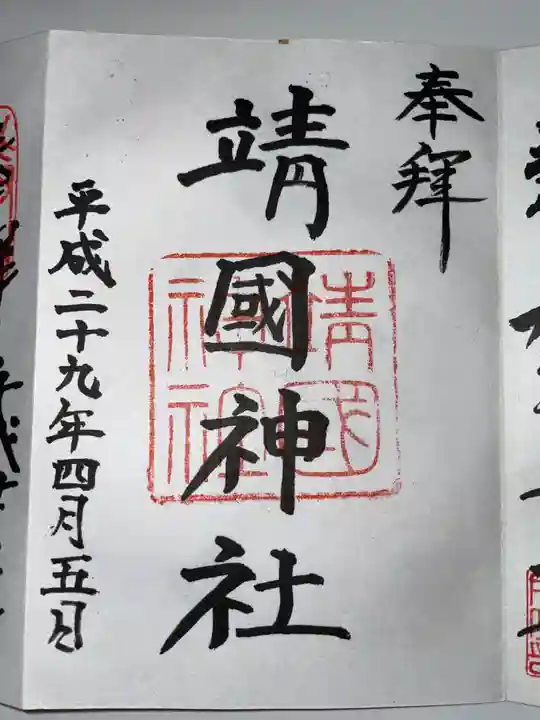 奉拝
靖國神社
靖国
神社
平成二十九年四月五日